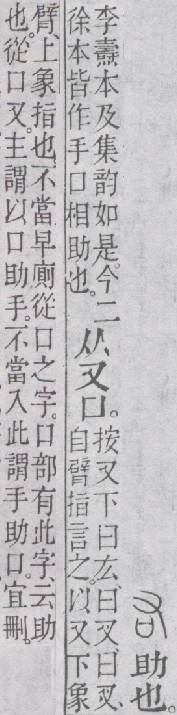 助也。
李燾本及集韵如是。今二
徐本皆作手口相助也。
从又口。
按又下曰厷、曰叉、曰㕚、
自臂指言之。以又下象
臂、上象指也。不當早廁從口之字。口部有此字、云助
也。從口又。主謂以口助手。不當入此謂手助口。宜刪。